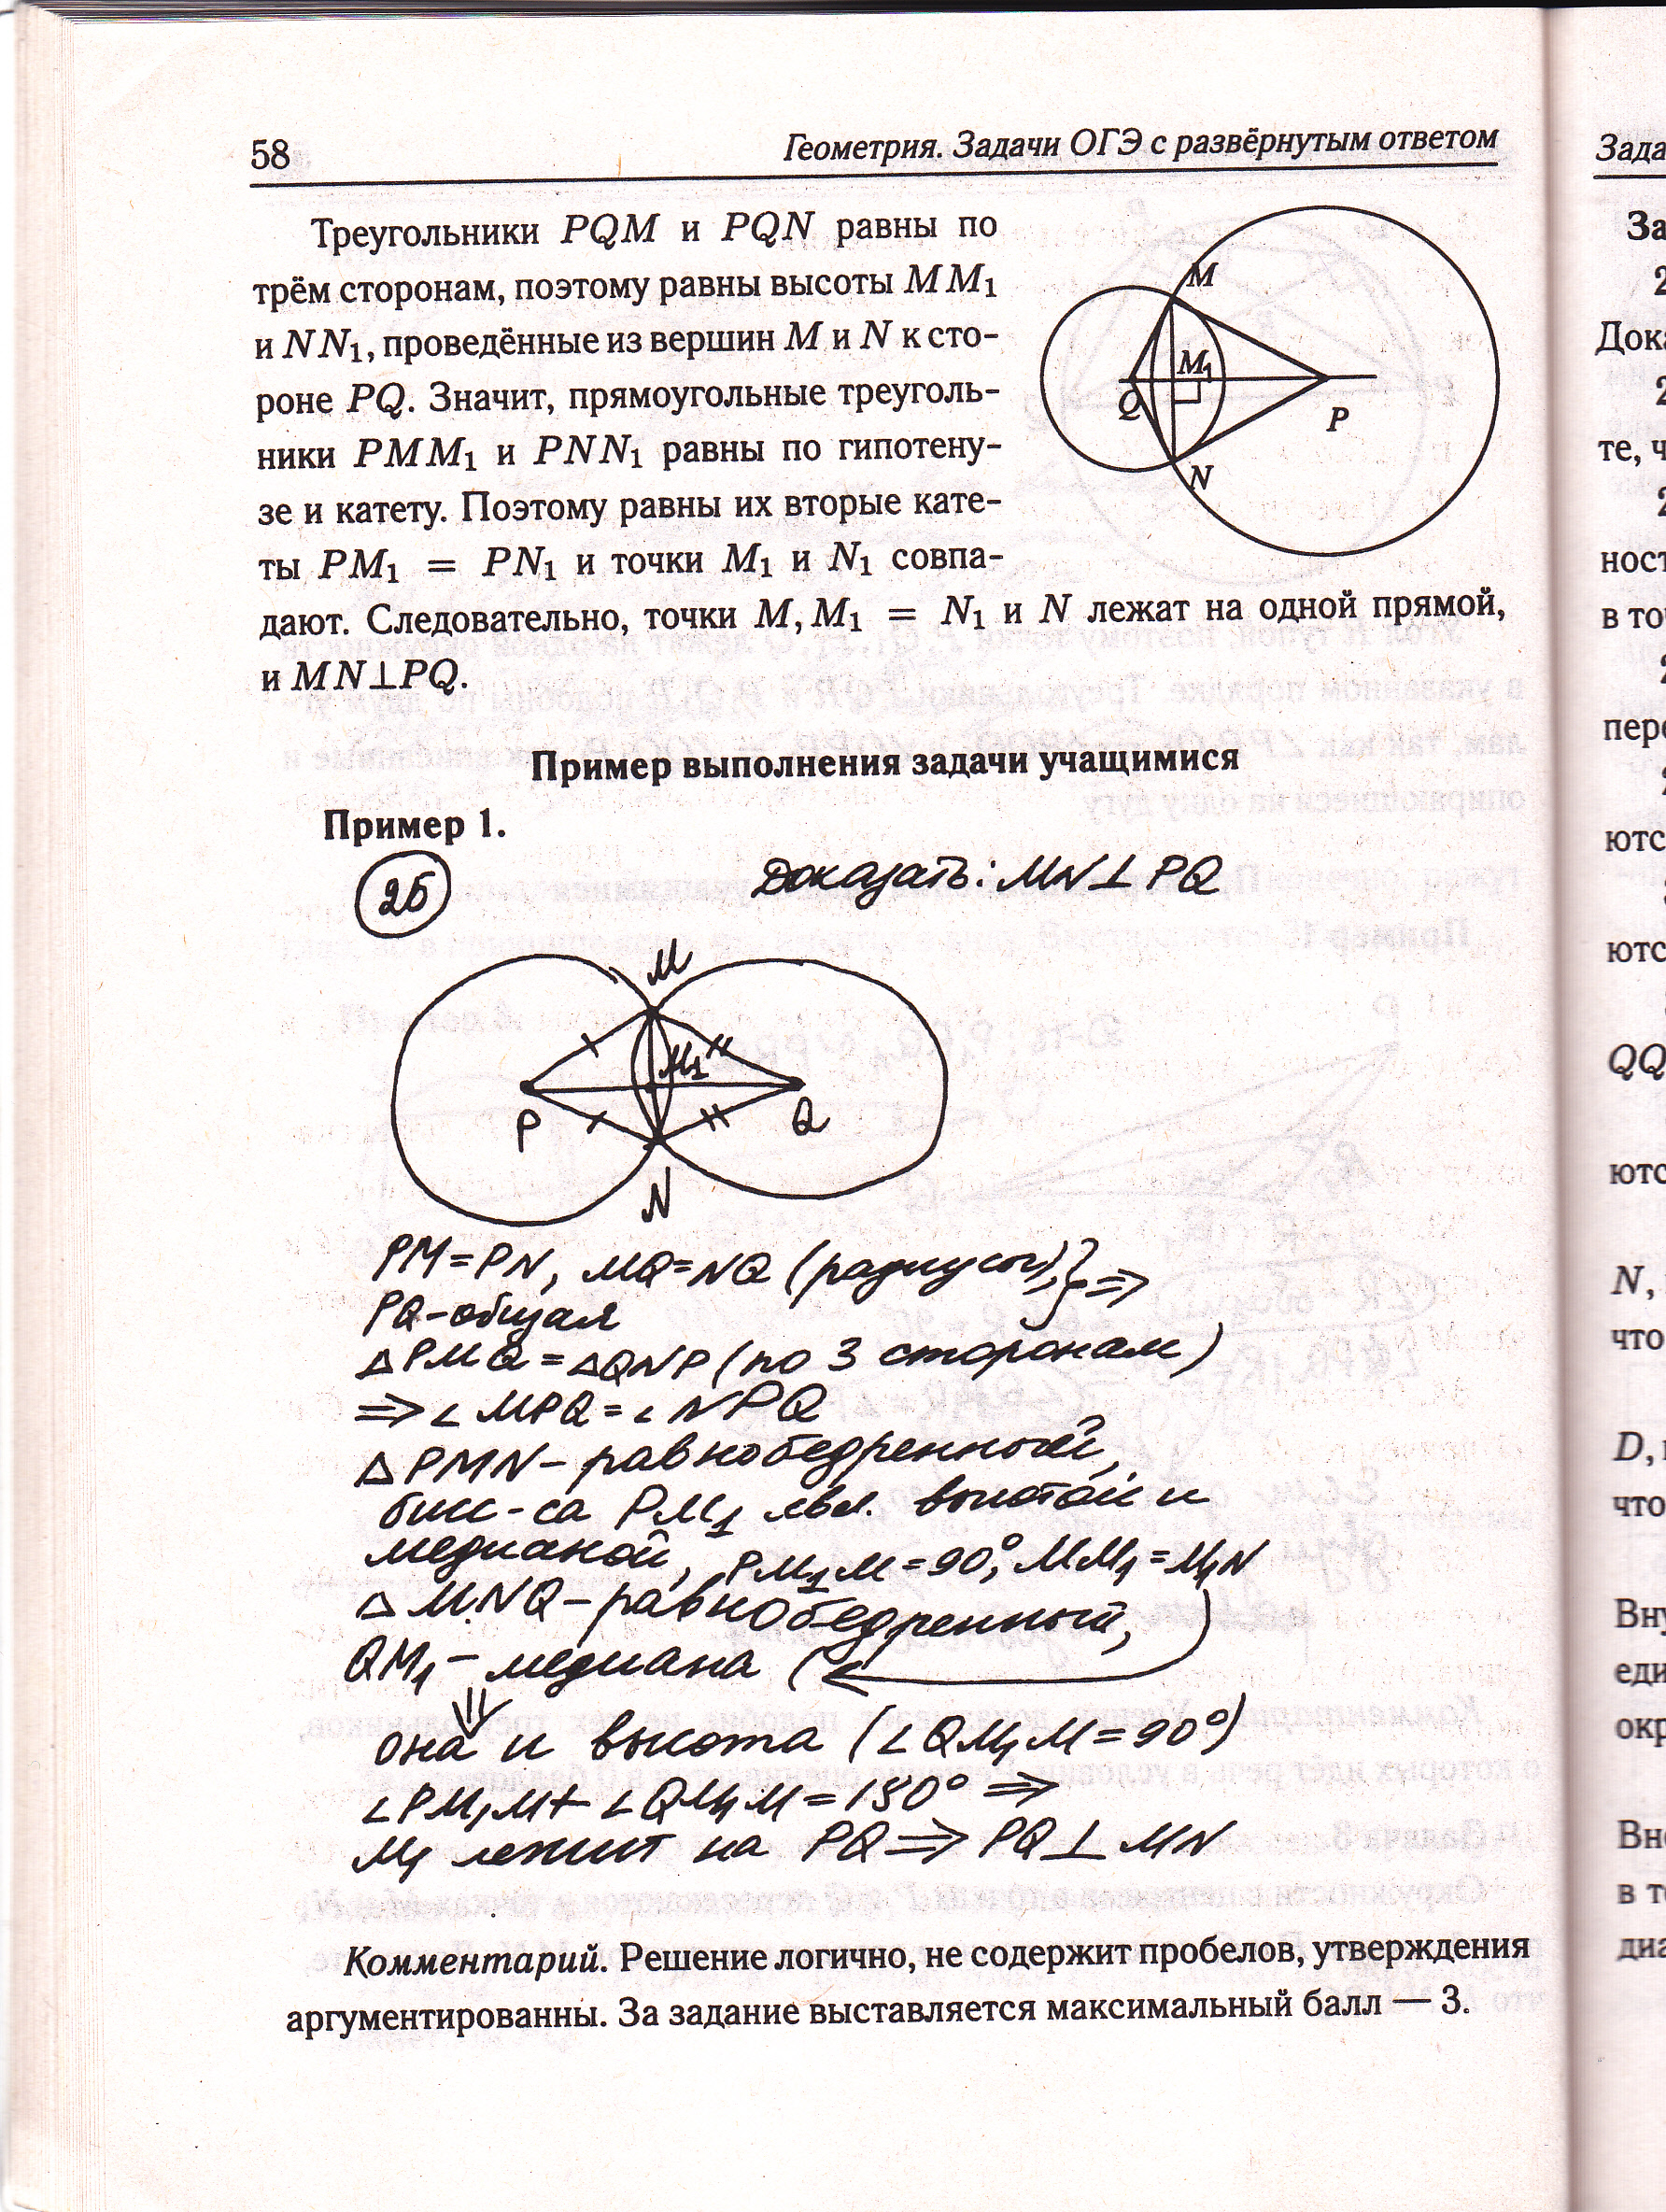 58
Геометрия. Задачи ОГЭ с развёрнутым ответом
Треугольники PQM и PQN равны по
трём сторонам, поэтому равны высоты MM₁
и NN₁, проведённые из вершин M и N к сто-
роне PQ. Значит, прямоугольные треуголь-
ники PMM₁ и PNN₁ равны по гипотену-
зе и катету. Поэтому равны их вторые кате-
ты PM₁ = PN₁ и точки M₁ и N₁ совпа-
дают. Следовательно, точки M, M₁ = N₁ и N лежат на одной прямой,
и MN⊥PQ.
M
M₁
Q
P
N
Пример выполнения задачи учащимися
Пример 1.
25
Доказать: MN⊥PQ
M
M₁
P
Q
N
PM=PN, MQ=NQ (радиусы),} ⇒
PQ-общая
△PMQ=△QNP (по 3 сторонам)
⇒∠MPQ=∠NPQ
△PMN-равнобедренный,
бисс-са PM₁ явл. высотой и
медианой, PM₁M=90°, MM₁=M₁N
△MNQ-равнобедренный,
QM₁-медиана (
⇓
она и высота (∠QM₁M=90°)
∠PM₁M+∠QM₁M=180° ⇒
M₁ лежит на PQ ⇒ PQ⊥MN
Комментарий. Решение логично, не содержит пробелов, утверждения
аргументированны. За задание выставляется максимальный балл — 3.
Зада
За
2
Дока
2
те, ч
2
ност
в то
2
пере
ютс
ютс
QQ
ютс
N,
что
D,
что
Вну
еди
окр
Вне
в т
диа